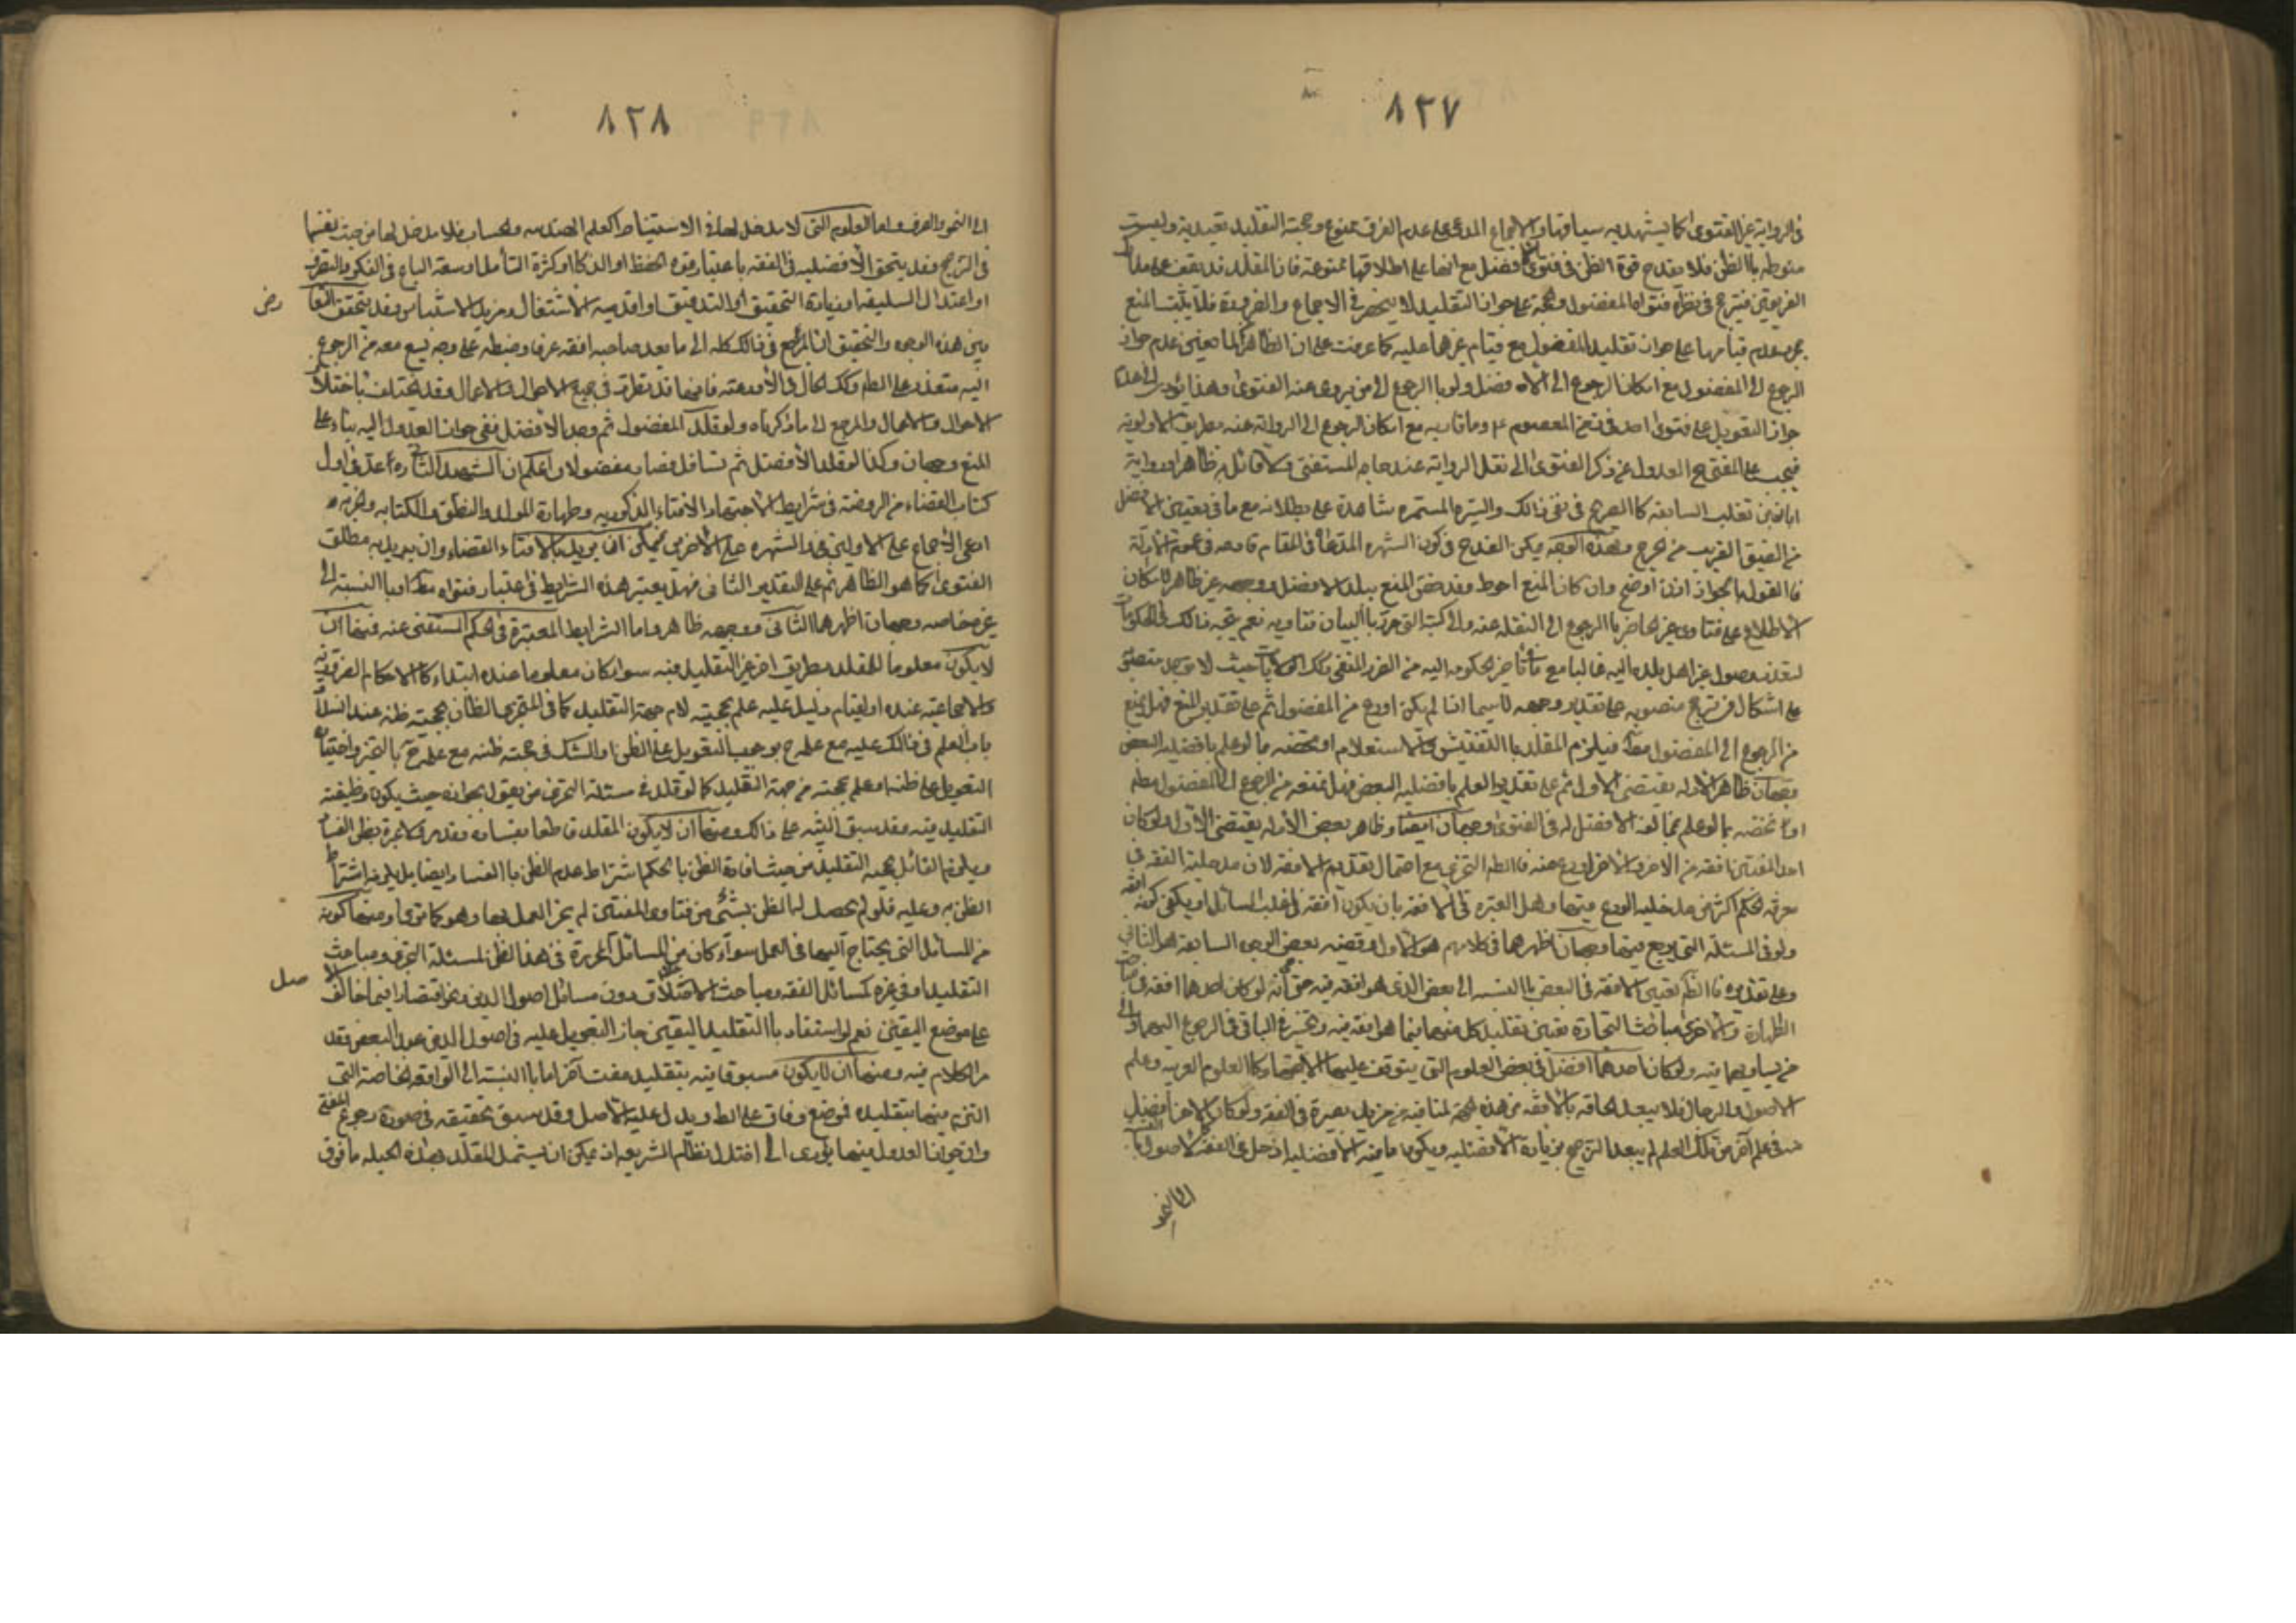 ٨٢٧
في الرواية غير الفتوى كما يشهد به سياقها والاجماع المدعى على عدم الفرق ممنوع وحجية التقليد تعبدية وليست
منوطه باالظن فلا يقدح قوة الظن في فتوى الافضل مع انها على اطلاقها ممنوعة فان المقلد قد يقف على
الفريقين فيترجح في نظره فتوى المفضول والحجة على جواز التقليد لا ينحصر في الاجماع والضرورة فلا يثبت المنع
بمجرد عدم قيامها على جواز تقليد المفضول مع قيام غيرهما عليه كما عرفت على ان الظاهر
الرجوع الى المفضول مع امكان الرجوع الى الافضل ولو باالرجوع الى من يروى عنه الفتوى وهذا يؤدى الى عدم
جواز التعويل على فتوى احد في زمن المعصوم ع وما قاربه مع امكان الرجوع الى الرواية عنه بطريق الاولوية
فيجب على المفتي ح العدول عن ذكر الفتوى الى نقل الرواية عند حاجة المستفتى ولا قائل به ظاهرا ورواية
ابان بن تغلب السابقة كاالصريح في نفى ذالك والسيرة المستمره شاهدة على بطلانه مع ما في تعيين الافضل
من الضيق القريب من الحرج وبهذه الوجه يمكن القدح في كون الشهره المدعاة في المقام قادحه في عموم الادلة
فاالقول باالجواز اذن اوضح وان كان المنع احوط وقد خص المنع ببلد الافضل ووجهه غير ظاهر لامكان
الاطلاع على فتاوى غير الحاضر باالرجوع الى النقله عنه والى كتبه التي حررت لبيان فتاويه نعم يتجه ذالك في الحكومات
لتعذر وصول غير اهل بلده اليه غالبا مع ما في تأخير الحكومه اليه من الضرر المنفى وكذا الولايات حيث لا يوجد منصوب
على اشكال في ترجيح منصوبه على تقدير وجوده لاسيما اذا لم يكن اورع من المفضول ثم على تقدير المنع فهل يمنع
من الرجوع الى المفضول مطلقا فيلزم المقلد باالتفتيش والاستعلام او يختص بما لو علم بافضلية البعض
وجهان ظاهر الادله يقتضى الاول ثم على تقدير العلم بافضلية البعض فهل يمنع من الرجوع الى المفضول مطلقا
او يختص بما لو علم بمخالفة الافضل له في الفتوى وجهان ايضا وظاهر بعض الأدله يقتضى الاول ولو كان
احد المفتين افقه من الاخر والاخر اورع منه فالظاهر التخيير مع احتمال تقديم الافقه لان مدخلية الفقه في
معرفة الحكم اكثر من مدخلية الورع فيها وهل العبره في الافقه بان يكون افقه في اغلب المسائل او يكفى كونه افقه
ولو في المسئلة التي يرجع فيها وجهان اظهرهما في كلامهم هو الاول وقضيه بعض الوجوه السابقة هو الثاني
وعلى تقديره فاالظاهر تعيين الافقه في البعض باالنسبه الى بعض الذي هو افقه فيه حتى انه لو كان احدهما افقه في مباحث
الطهارة والاخر في مباحث التجارة تعين تقليد كل منهما فيما هو افقه فيه ويتخير في الباقى في الرجوع اليهما والى
من يساويهما فيه ولو كان احدهما افضل في بعض العلوم التي يتوقف عليها الاجتهاد كاالعلوم العربيه وعلم
الاصول والرجال فلا يبعد الحاقه باالافقه من هذه الجهة لمنافيه من مزيد بصيرة في الفقه ولو كان الاخر افضل
منه في علم آخر من تلك العلوم لم يبعد الترجيح بزيادة الافضليه ويكون ما فيه الافضليه ادخل في الفقه كالاصول
الى النحو
٨٢٨
الى النحو والصرف واما العلوم التى لا مدخل لها في الاستنباط كعلم الهندسه والحساب فلا مدخل لها من حيث نفسها
في الترجيح وقد يتحقق الافضليه في الفقه باعتبار قوه الحفظ او الذكاا او كثرة التأمل او سعة الباع في الفكر والتصرف
او اعتدال السليقه او زيادة التحقيق او التدقيق او اقدميه الاشتغال ومزيد الاستيناس وقد يتحقق التعارض
بين هذه الوجوه والتحقيق ان المرجع في ذالك كله الى ما يعد صاحبه افقه عرفا وضبطه على وجه يسع معه من الرجوع
اليه متعذر على الظاهر وكذا الحال في الأورعيه فانها قد تطرد في جميع الاحوال والاعمال وقد يختلف باختلاف
الاحوال والاعمال والمرجع الى ما ذكرناه ولو قلد المفضول ثم وجد الافضل ففي جواز العدول اليه بناء على
المنع وجهان وكذا لو قلد الأفضل ثم تسافل فصار مفضولا واعلم ان الشهيد الثاني ره عد في اول
كتاب القضاء من الروضة في شرايط الاجتهاد والافتاء الذكوريه وطهارة المولد والنطق والكتابه والحريه و
ادعى الاجماع على الاولين وقد الشهره على الأخريين فيمكن ان يريد باالافتاء القضاء وان يريد به مطلق
الفتوى كما هو الظاهر ثم على التقدير الثاني فهل يعتبر هذه الشرايط في اعتبار فتواه مطلقا او باالنسبة الى
غيره خاصه وجهان اظهرهما الثاني ووجهه ظاهر واما الشرايط المعتبرة في الحكم المستفتى عنه فمنها ان
لا يكون معلوما للمقلد بطريق اخر غير التقليد فيه سواء كان معلوما عنده ابتداء كاالاحكام الضروريه
والاجماعية عنده او لقيام دليل عليه علم بحجيته لا من جهة التقليد كما في المتجزى الظان بحجية ظنه عند انسداد
باب العلم في ذالك عليه مع علمه ح بوجوب التعويل على الظن او الشك في حجية ظنه مع علمه ح باالتخير واختيار
التعويل على ظنه او علم بحجيته من جهة التقليد كما لو قلد في مسئلة التجزى من يقول بجوازه حيث يكون وظيفته
التقليد فيه وقد سبق التنبيه على ذالك ومنها ان لا يكون المقلد قاطعا بفساده وقد مر ولا عبرة بظن الفساد
ويلزم القائل بحجية التقليد من حيث افادة الظن باالحكم اشتراط عدم الظن باالفساد ايضا بل يلزمه اشتراط
الظن به وعليه فلو لم يحصل له الظن بشئ من فتاوى المفتين لم يجز العمل بها وهو كما ترى ومنها كونه
من المسائل التي يحتاج اليها في العمل سواء كان من المسائل المحررة في هذا الفن لمسئلة التجزى ومباحث
التقليد او في غيره كمسائل الفقه ومباحث الاخلاق دون مسائل اصول الدين وغيرها اقتصارا فيما خالف الاصل
على موضع اليقين نعم لو استفاد باالتقليد اليقين جاز التعويل عليه في اصول الدين عند البعض وقد
مر الكلام فيه ومنها ان لا يكون مسبوقا فيه بتقليد مفت آخر اما باالنسبة الى الواقعة الخاصة التي
التزم فيها بتقليده فموضع وفاق على الظاهر ويدل عليه الاصل وقد سبق تحقيقه في صورة رجوع المفتي
وان جواز العدول فيها يؤدى الى اختلال نظام الشريعه اذ يمكن ان يستعمل المقلد بهذه الحيله ما فوق